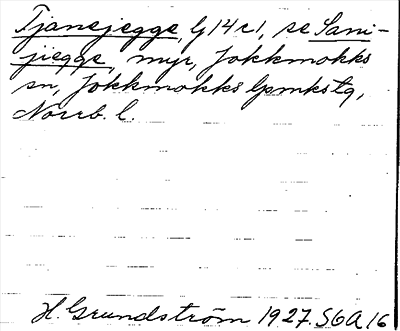 Tjanejegge, G14c1, se Sani-
jiegge, myr, Jokkmokks
sn, Jokkmokks lpmkstg,
Norrb. l.
H. Grundström 1927. SOA 16